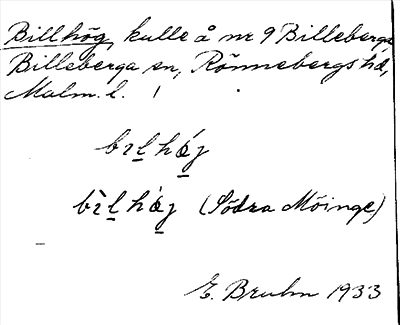 Billhög, kulle å nr 9 Billeberga,
Billeberga sn, Rönnebergs hd,
Malm. l.
bɪl̲hǿ̲j
bɪ̀l̲hǿ̲j (Södra Möinge)
E. Bruhn 1933